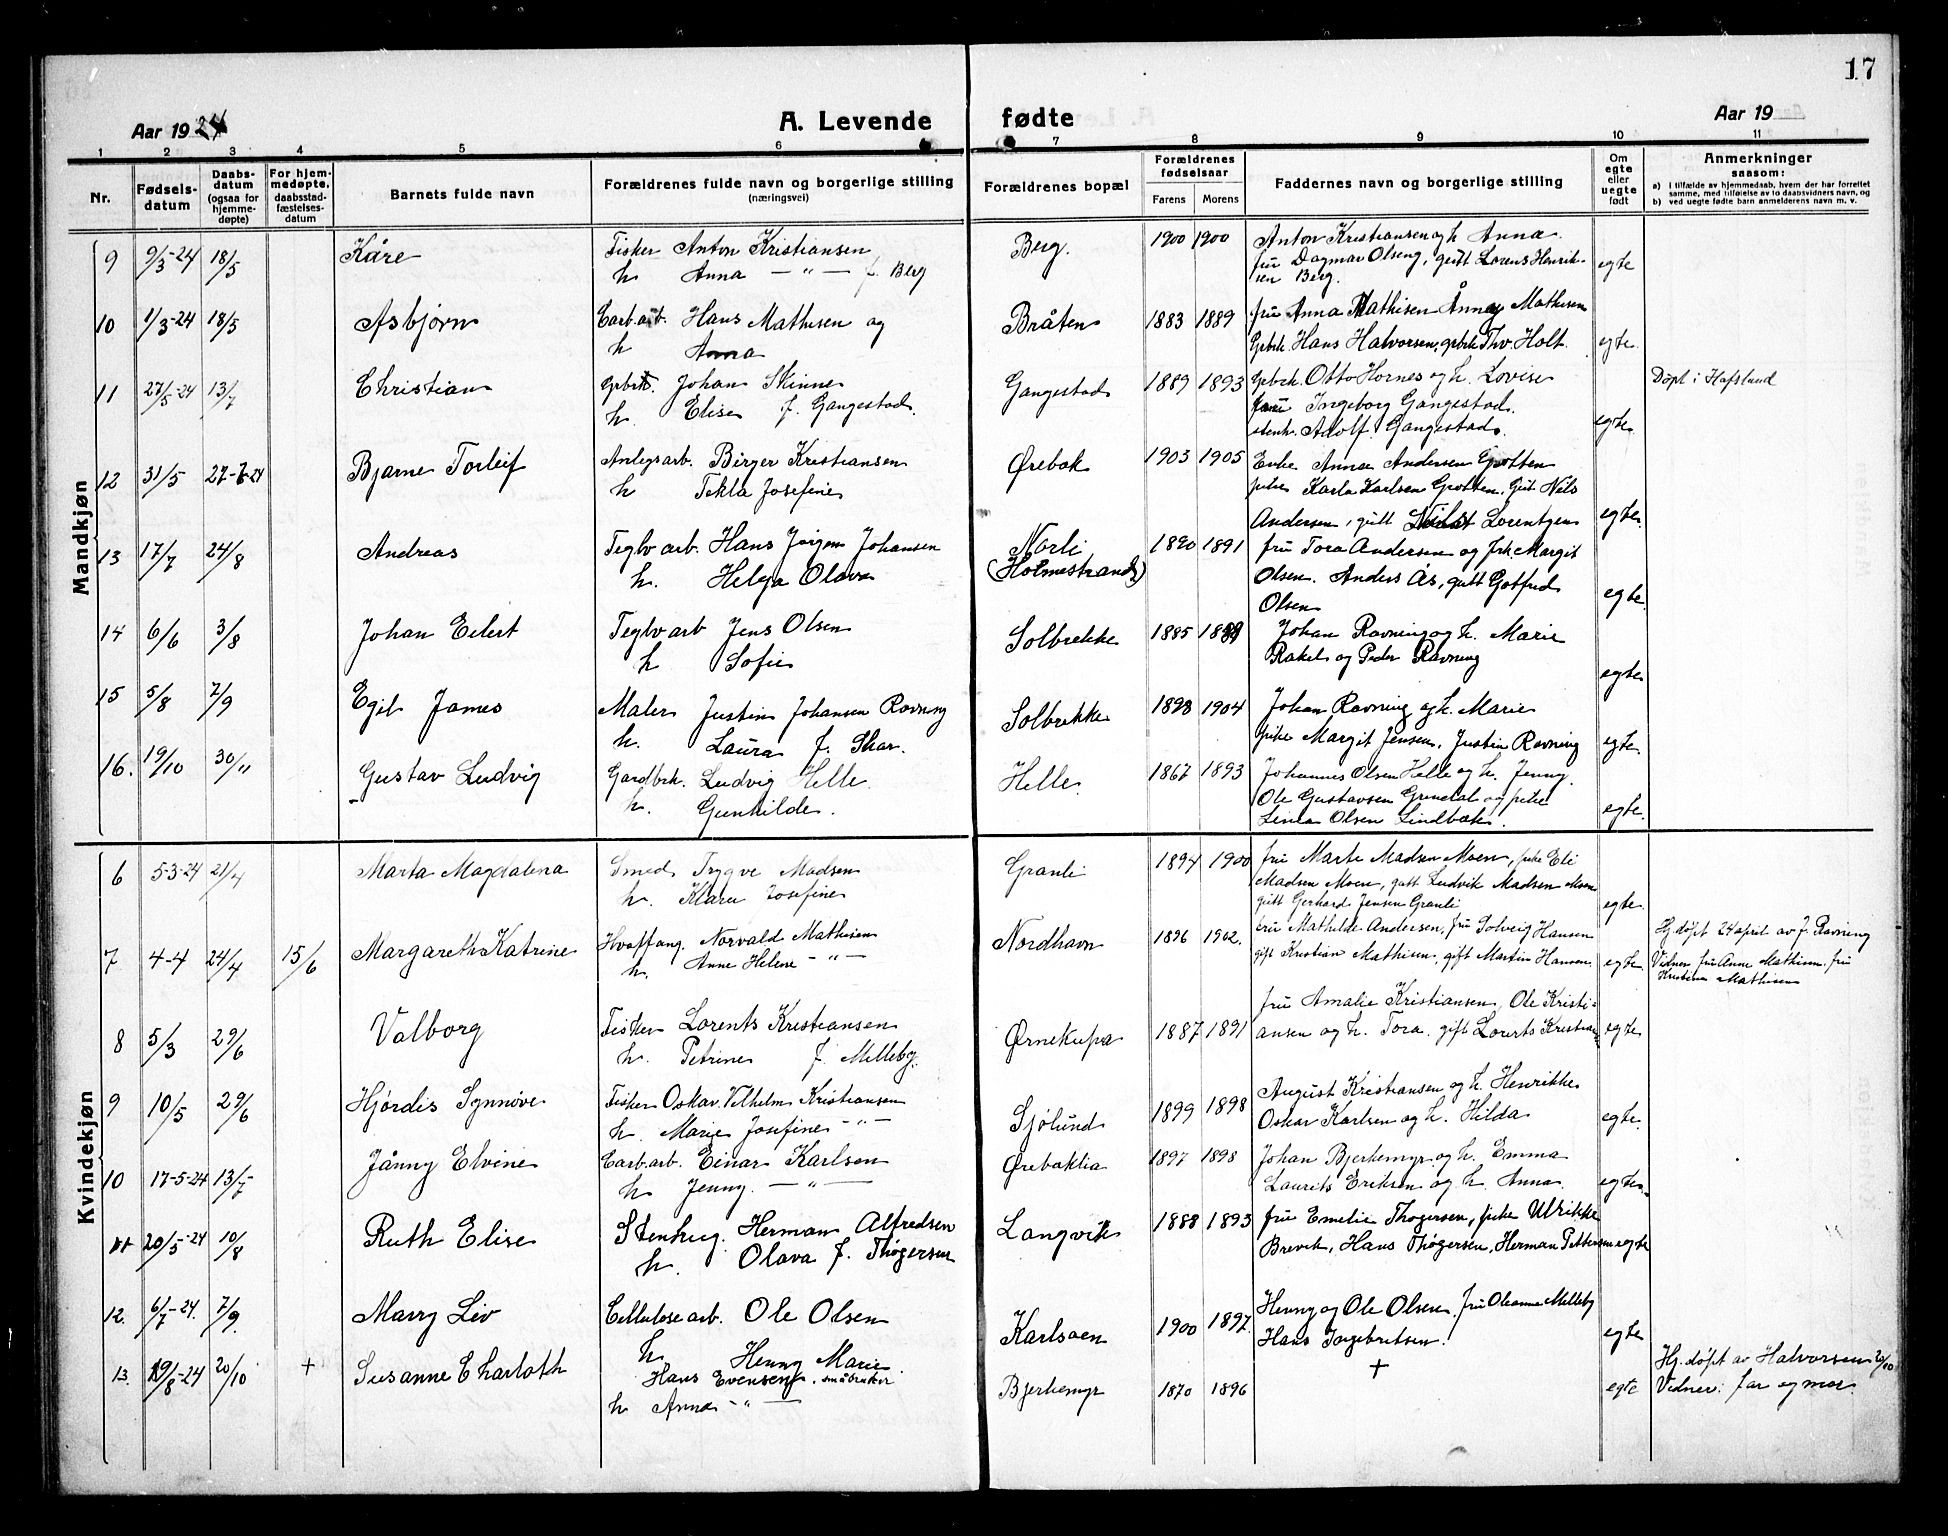 17
Aar 1924
A. Levende fødte
Aar 19
1 2 3 4 5 6 7 8 9 10 11
Nr.
Fødsels-datum
Daabs-datum (ogsaa for hjemme-døpte)
For hjem-medøpte, daabsstad-fæstelses-datum
Barnets fulde navn
Forældrenes fulde navn og borgerlige stilling (næringsvei)
Forældrenes bopæl
Forældrenes fødselsaar
Farens Morens
Faddernes navn og borgerlige stilling
Om egte eller uegte født
Anmerkninger saasom:
a) I tilfælde av hjemmedaab, hvem der har forrettet samme, med tilføielse av to daabsvidners navn, og
b) ved uegte fødte barn anmelderens navn m. v.
Mandkjøn
9 9/3-24 18/5 Kåre Fisker Anton Kristiansen Berg. 1900 1900 Anton Kristiansen og h. Anna
h Anna —"— f. Berg fru Dagmar Olseng, gutt Lorens Henrik-
sen Berg. egte
10 1/3-24 18/5 Asbjørn Carb.arb. Hans Mathisen og Bråten 1883 1889 fru Anna Mathisen Ånnøy Mathisen
h Anna Grbrk. Hans Halvorsen, grbrk Thv. Holt. egte
11 27/5-24 13/7 Christian Grbrk. Johan Skinne Gangestad 1889 1893 Grbrk. Otto Hornes og h. Lovise Døpt i Hafslund
h. Elise f. Gangestad. fru Ingeborg Gangestad.
stenh. Adolf Gangestad. egte
12 31/5 27-7-24 Bjarne Torleif Anlegsarb. Birger Kristiansen Ørebak 1903 1905 Enke Anna Andersen Grotten
h Tekla Josefine pike Karla Karlsen Grotten, Gut Nils
Andersen, gutt Lorentzen egte
13 17/7 24/8 Andreas Teglv arb. Hans Jørgen Johansen Norli 1890 1891 fru Tora Andersen og frk Margit
h. Helga Olava (Holmestrand) Olsen. Anders Ås, gutt Gotfred
Olsen egte
14 6/6 3/8 Johan Eilert Teglv arb Jens Olsen Solbrekke 1885 Johan Ravning og h. Marie
h Sofie Rakel og Peder Ravning egte
15 5/8 7/9 Egil James Maler Justin Johansen Ravning Solbrekke 1898 1904 Johan Ravning og h. Marie
h. Laura f. Skar. pike Margit Jensen, Justin Ravning egte.
16. 19/10 30/11 Gustav Ludvig Gardbrk. Ludvig Helle. Helle 1867 1893 Johannes Olsen Helle og h. Jenny.
h. Gunhilde. Ole Gustavsen Grindal og pike
Lina Olsen Lindbæk. egte.
Kvindekjøn
6 5-3-24 21/4 Marta Magdalena Smed Trygve Madsen Granli 1894 1900 fru Marte Madsen Moen, pike Eli
h. Klara Josefine Madsen Moen, gutt Ludvik Madsen Moen
gutt Gerhard Jensen Granli egte.
7 4-4 24/4 15/6 Margareth Katrine Hvalfang. Norvald Mathisen Nordhavn 1896 1902. fru Mathilde Andersen, fru Solveig Hansen Hj. døpt 24 april av J. Ravning
h. Anne Helene —"— gift Kristian Mathisen, gift Martin Hansen. egte Vidner fru Anne Mathisen, fru
Kristine Mathisen
8 5/3 29/6 Valborg Fisker Lorents Kristiansen Ørnekupa 1887 1891 fru Amalie Kristiansen, Ole Kristi-
h. Petrine f. Milleby. ansen og h. Tora. gift Lorents Kristian egte
9 10/5 29/6 Hjørdis Synnøve Fisker Oskar Vilhelm Kristiansen Sjølund 1899 1898 August Kristiansen og h. Henrikke
h. Marie Josefine —"— Oskar Karlsen og h. Hilda egte.
10 17-5-24 13/7 Jånny Elvine Carb.arb. Einar Karlsen Ørebaklia 1897 1898 Johan Bjerkemyr og h. Emma
h Jenny. —"— Laurits Eriksen og h. Anna. egte.
11 20/5-24 10/8 Ruth Elise Stenhug. Herman Alfredsen Langvik 1888 1893 fru Emelie Thøgersen, pike Ulrikke
h. Olava f. Thøgersen Brevik, Hans Thøgersen, Herman Pettersen egte
12. 6/7-24. 7/9. Marry Liv Cellulose arb. Ole Olsen Karlsøen 1900 1897. Henny og Ole Olsen. fru Oleanne Milleby
h Henny Marie. Hans Ingebretsen. egte
13. 19/8-24 20/10 + Susanne Charloth Hans Evensen, småbruker Bjerkemyr 1870 1896 + egte Hj. døpt av Halvorsen 20/10
h Anna —"— Vidner: far og mor.